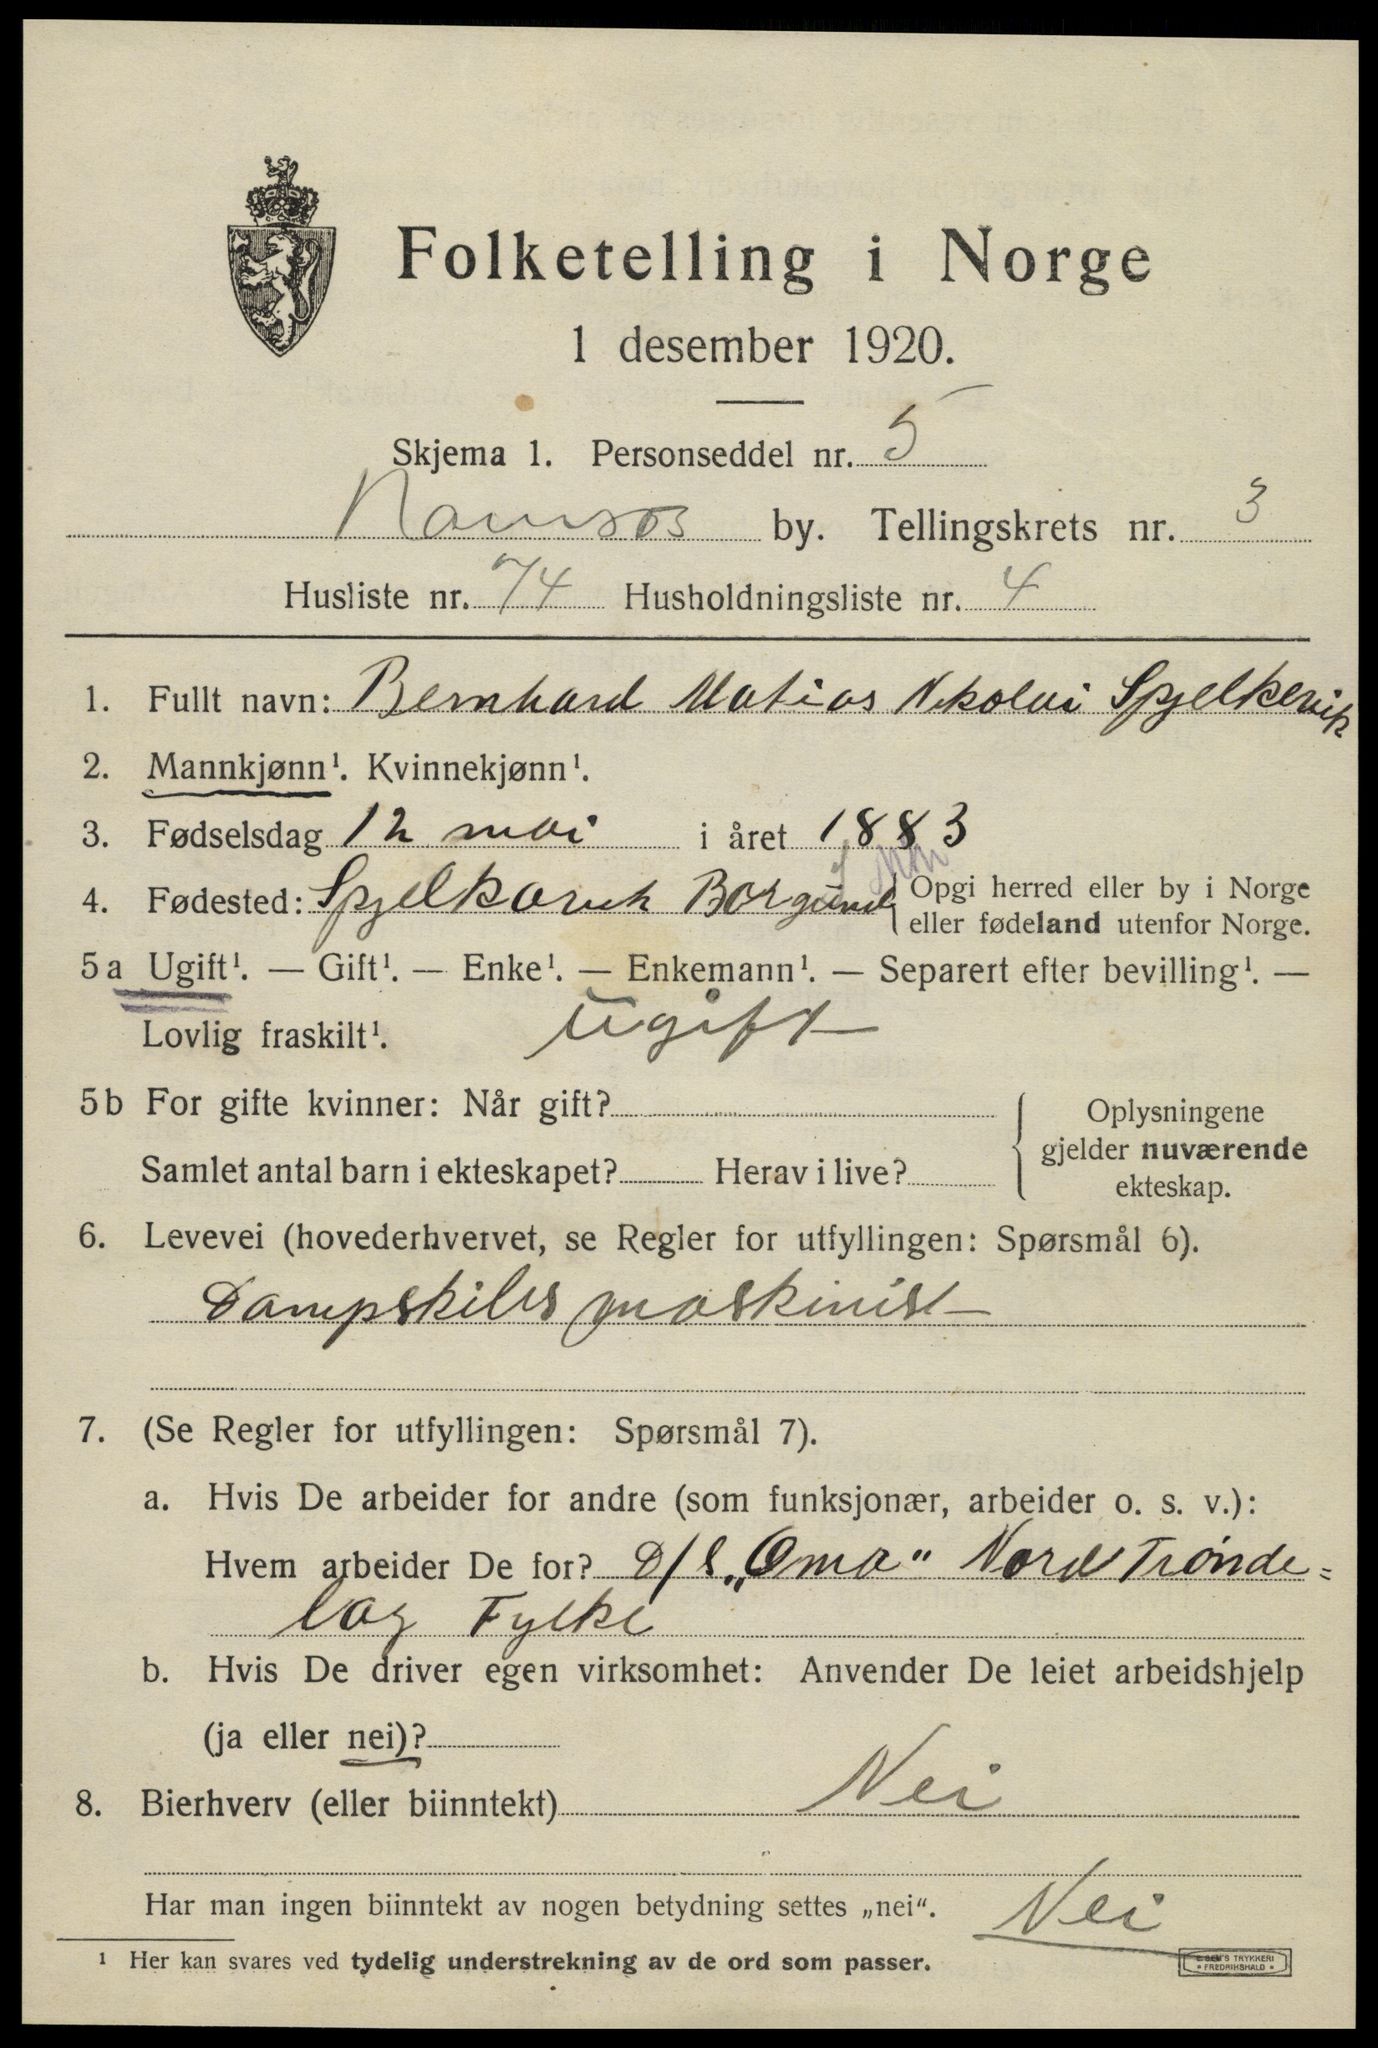 Folketelling i Norge
1 desember 1920.
Skjema 1. Personseddel nr. 5
Namsos by. Tellingskrets nr. 3
Husliste nr. 74 Husholdningsliste nr. 4
1. Fullt navn: Bernhard Matias Nikolai Spjelkevik
2. Mannkjønn¹. Kvinnekjønn¹.
3. Fødselsdag 12 mai i året 1883
4. Fødested: Spjelkavik Borgund Opgi herred eller by i Norge
eller fødeland utenfor Norge.
5a Ugift¹. — Gift¹. — Enke¹. — Enkemann¹. — Separert efter bevilling¹. —
Lovlig fraskilt¹. Ugift
5b For gifte kvinner: Når gift? Oplysningene
gjelder nuværende
Samlet antal barn i ekteskapet? Herav i live? ekteskap.
6. Levevei (hovederhvervet, se Regler for utfyllingen: Spørsmål 6).
Dampskibsmaskinist
7. (Se Regler for utfyllingen: Spørsmål 7).
a. Hvis De arbeider for andre (som funksjonær, arbeider o. s. v.):
Hvem arbeider De for? D/S „Oma" Nord Trønde=
lag Fylke
b. Hvis De driver egen virksomhet: Anvender De leiet arbeidshjelp
(ja eller nei)?
8. Bierhverv (eller biinntekt) Nei
Har man ingen biinntekt av nogen betydning settes „nei". Nei
¹ Her kan svares ved tydelig understrekning av de ord som passer.
TRYKKERI
FREDRIKSHALD